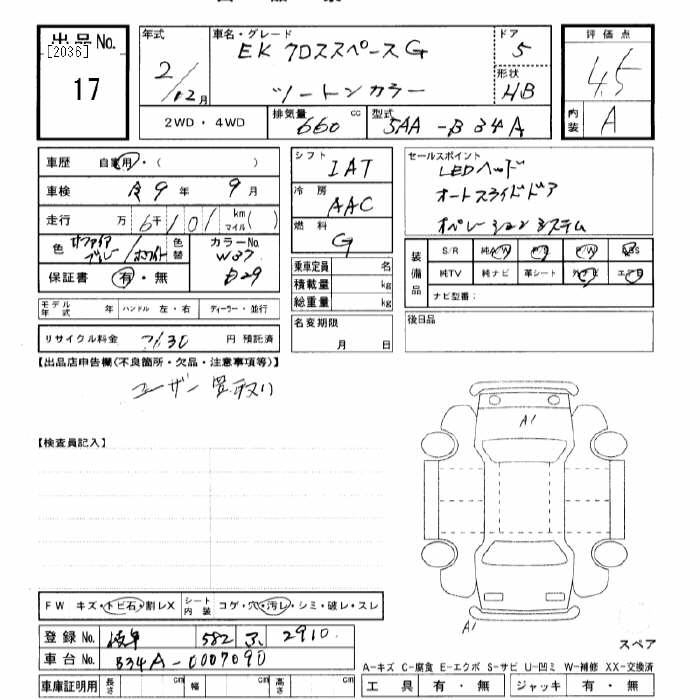 出品No.
[2036]
17
年式
2/12月
車名・グレード
EK クロススペースG
ツートンカラー
ドア
5
形状
HB
評価点
4.5
内装
A
2WD・4WD
排気量 660 cc
型式 5AA-B34A
車歴 自家用・( )
車検 R9年 9月
走行 万 6千 101 km マイル( )
色 サファイア ホワイト
色替
カラーNo.
W37
D29
保証書 有・無
モデル年式 年 ハンドル 左・右 ディーラー・並行
リサイクル料金 円 預託済
シフト
IAT
冷房
AAC
燃料
G
乗車定員 名
積載量 kg
総重量 kg
名変期限
月 日
セールスポイント
LEDヘッド
オートスライドドア
オペレーションシステム
装備品
S/R 純A/W P/S P/W ABS
純TV 純ナビ 革シート エアB
ナビ型番:
後日品
【出品店申告欄(不良箇所・欠品・注意事項等)】
ユーザー買取り
【検査員記入】
A1
A1
FW キズ・トビ石・割レX
シート内装 コゲ・穴・汚レ・シミ・破レ・スレ
登録No. 岐阜 582 2910
車台No. B34A-0007090
車庫証明用 長さ cm 幅 cm 高さ cm
スペア
A-キズ C-腐食 E-エクボ S-サビ U-凹ミ W-補修 XX-交換済
工具 有・無 ジャッキ 有・無